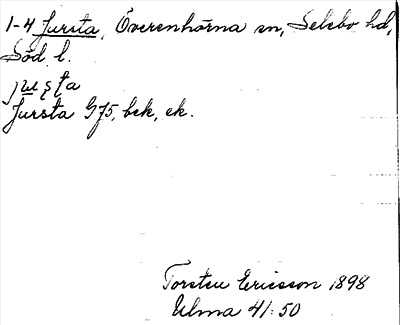 1-4 Jursta, Överenhörna sn, Selebo hd,
Söd. l.
Jursta G 75, bek, ek.
Torsten Ericsson 1898
Ulma 41:50